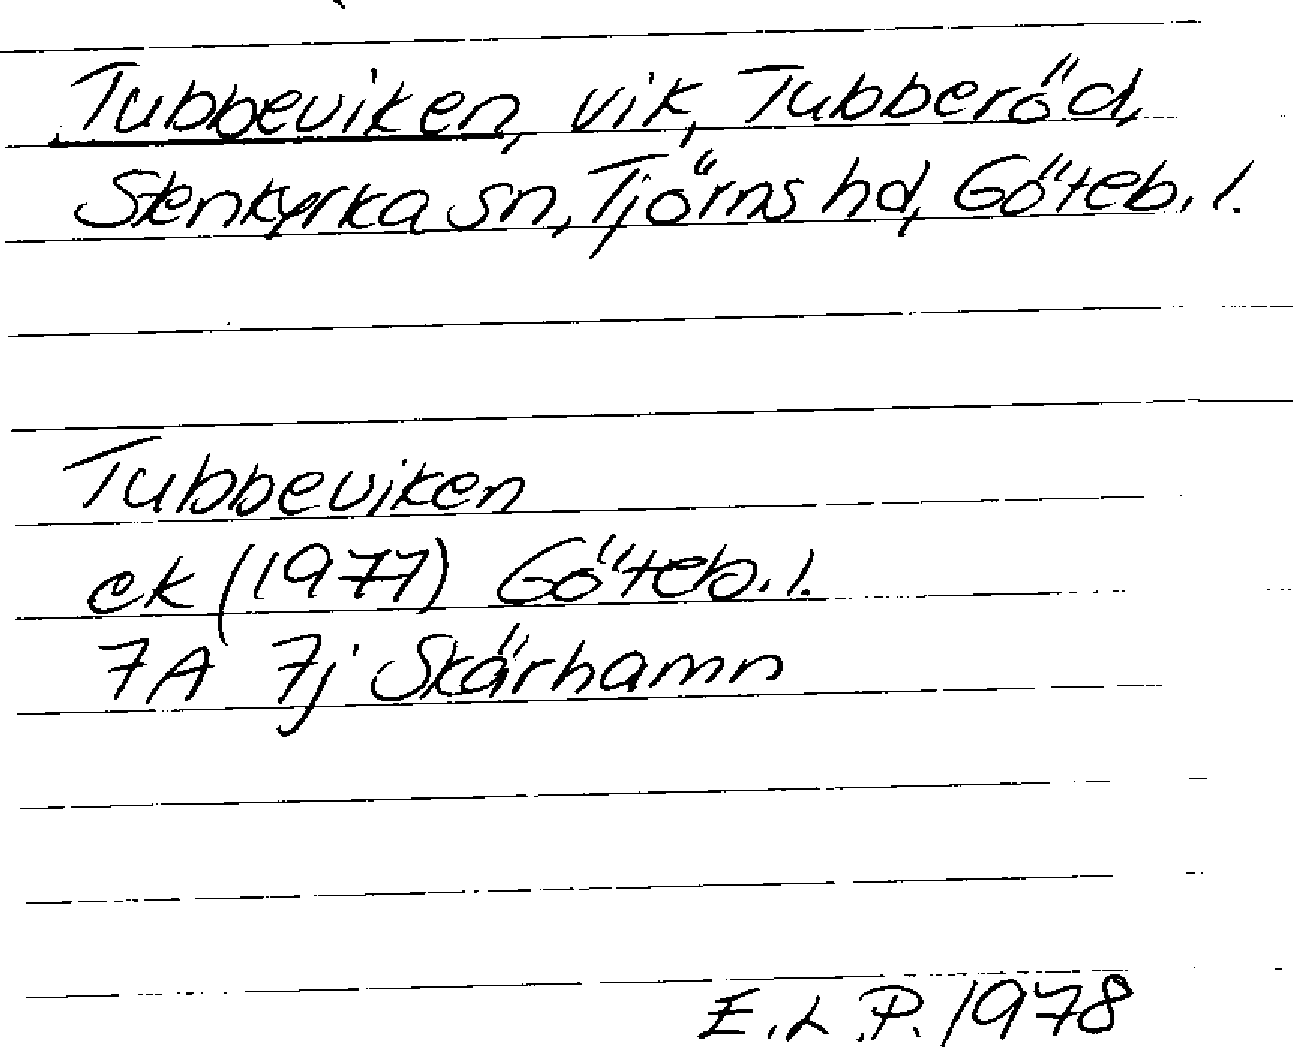 Tubbeviken, vik, Tubberöd,
Stenkyrka sn, Tjörns hd, Göteb. l.
Tubbeviken
ek (1977) Göteb. l.
7A 7j Skärhamn
E.L.P. 1978